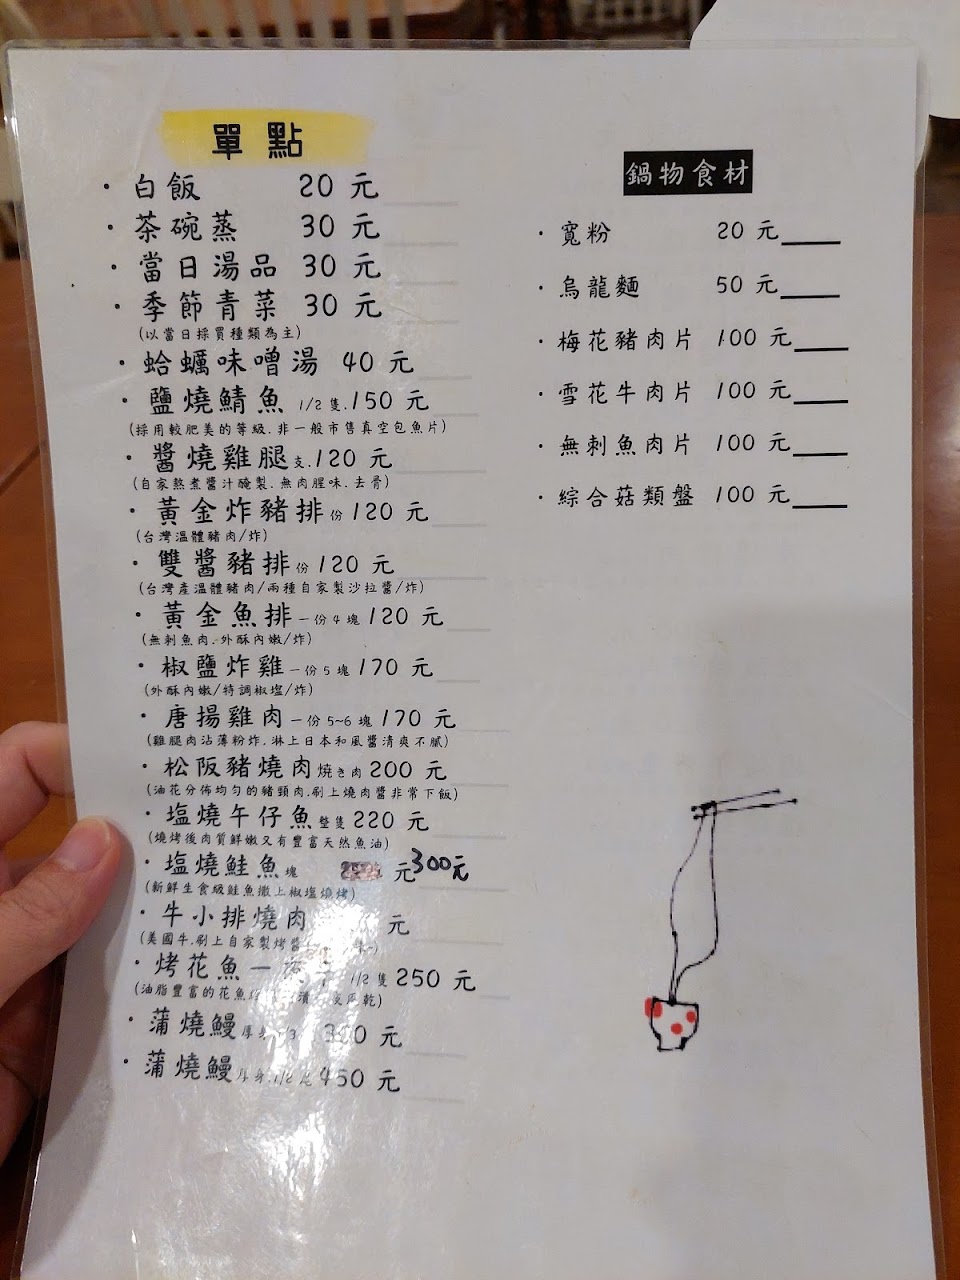 單點
・白飯 20 元
・茶碗蒸 30 元
・當日湯品 30 元
・季節青菜 30 元
(以當日採買種類為主)
・蛤蠣味噌湯 40 元
・鹽燒鯖魚 1/2 隻.150 元
(採用較肥美的等級.非一般市售真空包魚片)
・醬燒雞腿支.120 元
(自家熬煮醬汁醃製.無肉腥味.去骨)
・黃金炸豬排份 120 元
(台灣溫體豬肉/炸)
・雙醬豬排份 120 元
(台灣產溫體豬肉/兩種自家製沙拉醬/炸)
・黃金魚排一份4塊 120 元
(無刺魚肉.外酥內嫩/炸)
・椒鹽炸雞一份5塊 170 元
(外酥內嫩/特調椒塩/炸)
・唐揚雞肉一份5~6塊 170 元
(雞腿肉沾薄粉炸.淋上日本和風醬清爽不膩)
・松阪豬燒肉焼き肉 200 元
(油花分佈均勻的豬頸肉.刷上燒肉醬非常下飯)
・塩燒午仔魚整隻 220 元
(燒烤後肉質鮮嫩又有豐富天然魚油)
・塩燒鮭魚塊 元300元
(新鮮生食級鮭魚撒上椒塩燒烤)
・牛小排燒肉 元
(美國牛.刷上自家製烤醬
・烤花魚一夜 1/2 隻 250 元
(油脂豐富的花魚 乾)
・蒲燒鰻厚身 元
・蒲燒鰻厚身.1/2 450 元
鍋物食材
・寬粉 20 元
・烏龍麵 50 元
・梅花豬肉片 100 元
・雪花牛肉片 100 元
・無刺魚肉片 100 元
・綜合菇類盤 100 元